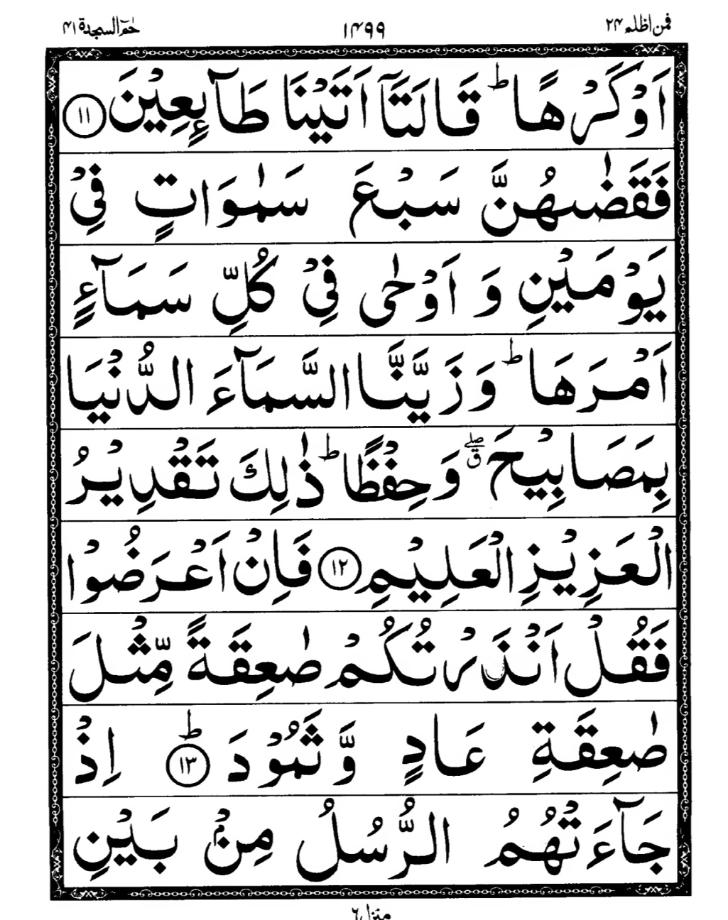 حٰمٓ السجدة ٤١ ١٤٩٩ فمن اظلم ٢٤
اَوْ كَرْهًا ؕ قَالَتَاۤ اَتَيْنَا طَآٮِٕعِيْنَ ۝۱۱
فَقَضٰٮهُنَّ سَبْعَ سَمٰوَاتٍ فِيْ
يَوْمَيْنِ وَ اَوْحٰى فِيْ كُلِّ سَمَآءٍ
اَمْرَهَا ؕ وَزَيَّنَّا السَّمَآءَ الدُّنْيَا
بِمَصَابِيْحَ ۖ ق وَحِفْظًا ؕ ذٰلِكَ تَقْدِيْرُ
الْعَزِيْزِ الْعَلِيْمِ ۝۱۲ فَاِنْ اَعْرَضُوْا
فَقُلْ اَنْذَرْتُكُمْ صٰعِقَةً مِّثْلَ
صٰعِقَةِ عَادٍ وَّثَمُوْدَ ؕ ۝۱۳ اِذْ
جَآءَتْهُمُ الرُّسُلُ مِنْۢ بَيْنِ
منزل ٦